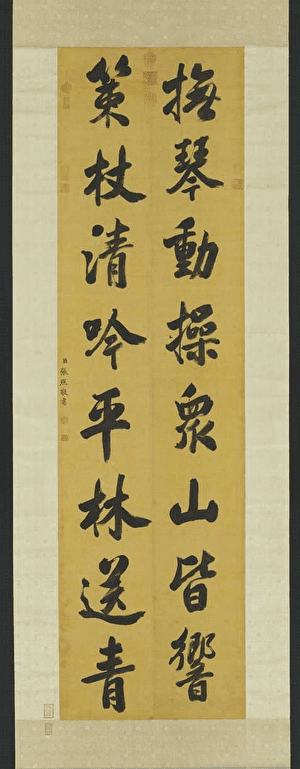 撫琴動操眾山皆響
策杖清吟平林送青
張照敬書